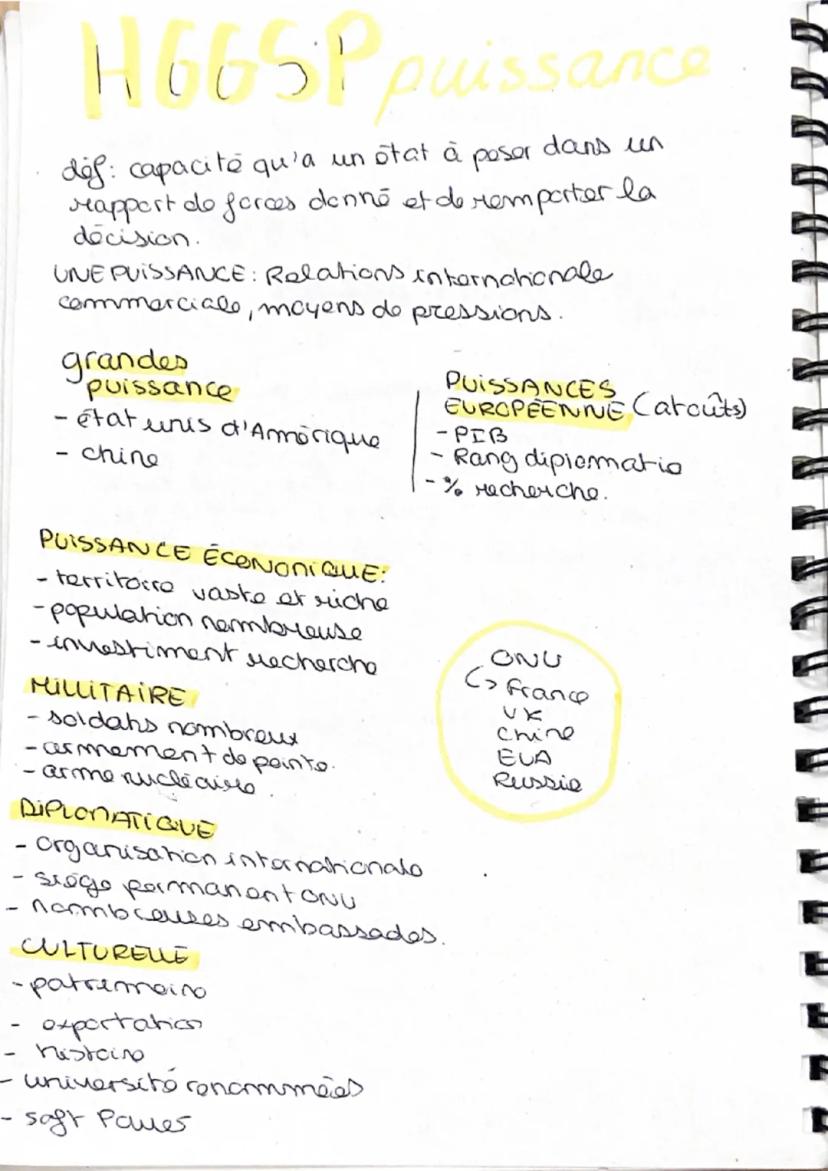 HGGSP puissance
déf: capacité qu'a un état à peser dans un
rapport de forces donné et de remporter la
décision.
UNE PUISSANCE: Relations internationale
commerciale, moyens de pressions.
grandes
puissance
- état unis d'Amérique
- chine
PUISSANCES
EUROPÉENNE (atoûts)
- PIB
- Rang diplomatie
- % recherche.
PUISSANCE ÉCONONIQUE:
- territoire vaste et riche
- population nombreuse
- investiment recherche
MILLITAIRE
- soldats nombreux
- armement de pointe.
- arme nucléaire.
ONU
↳ France
UK
Chine
EUA
Russie
DIPLONATIQUE
- organisation internationale
- siège permanent ONU
- nombreuses embassades.
CULTURELLE
- patremoine
- exportation
- histoire
- université renommées
- soft Power